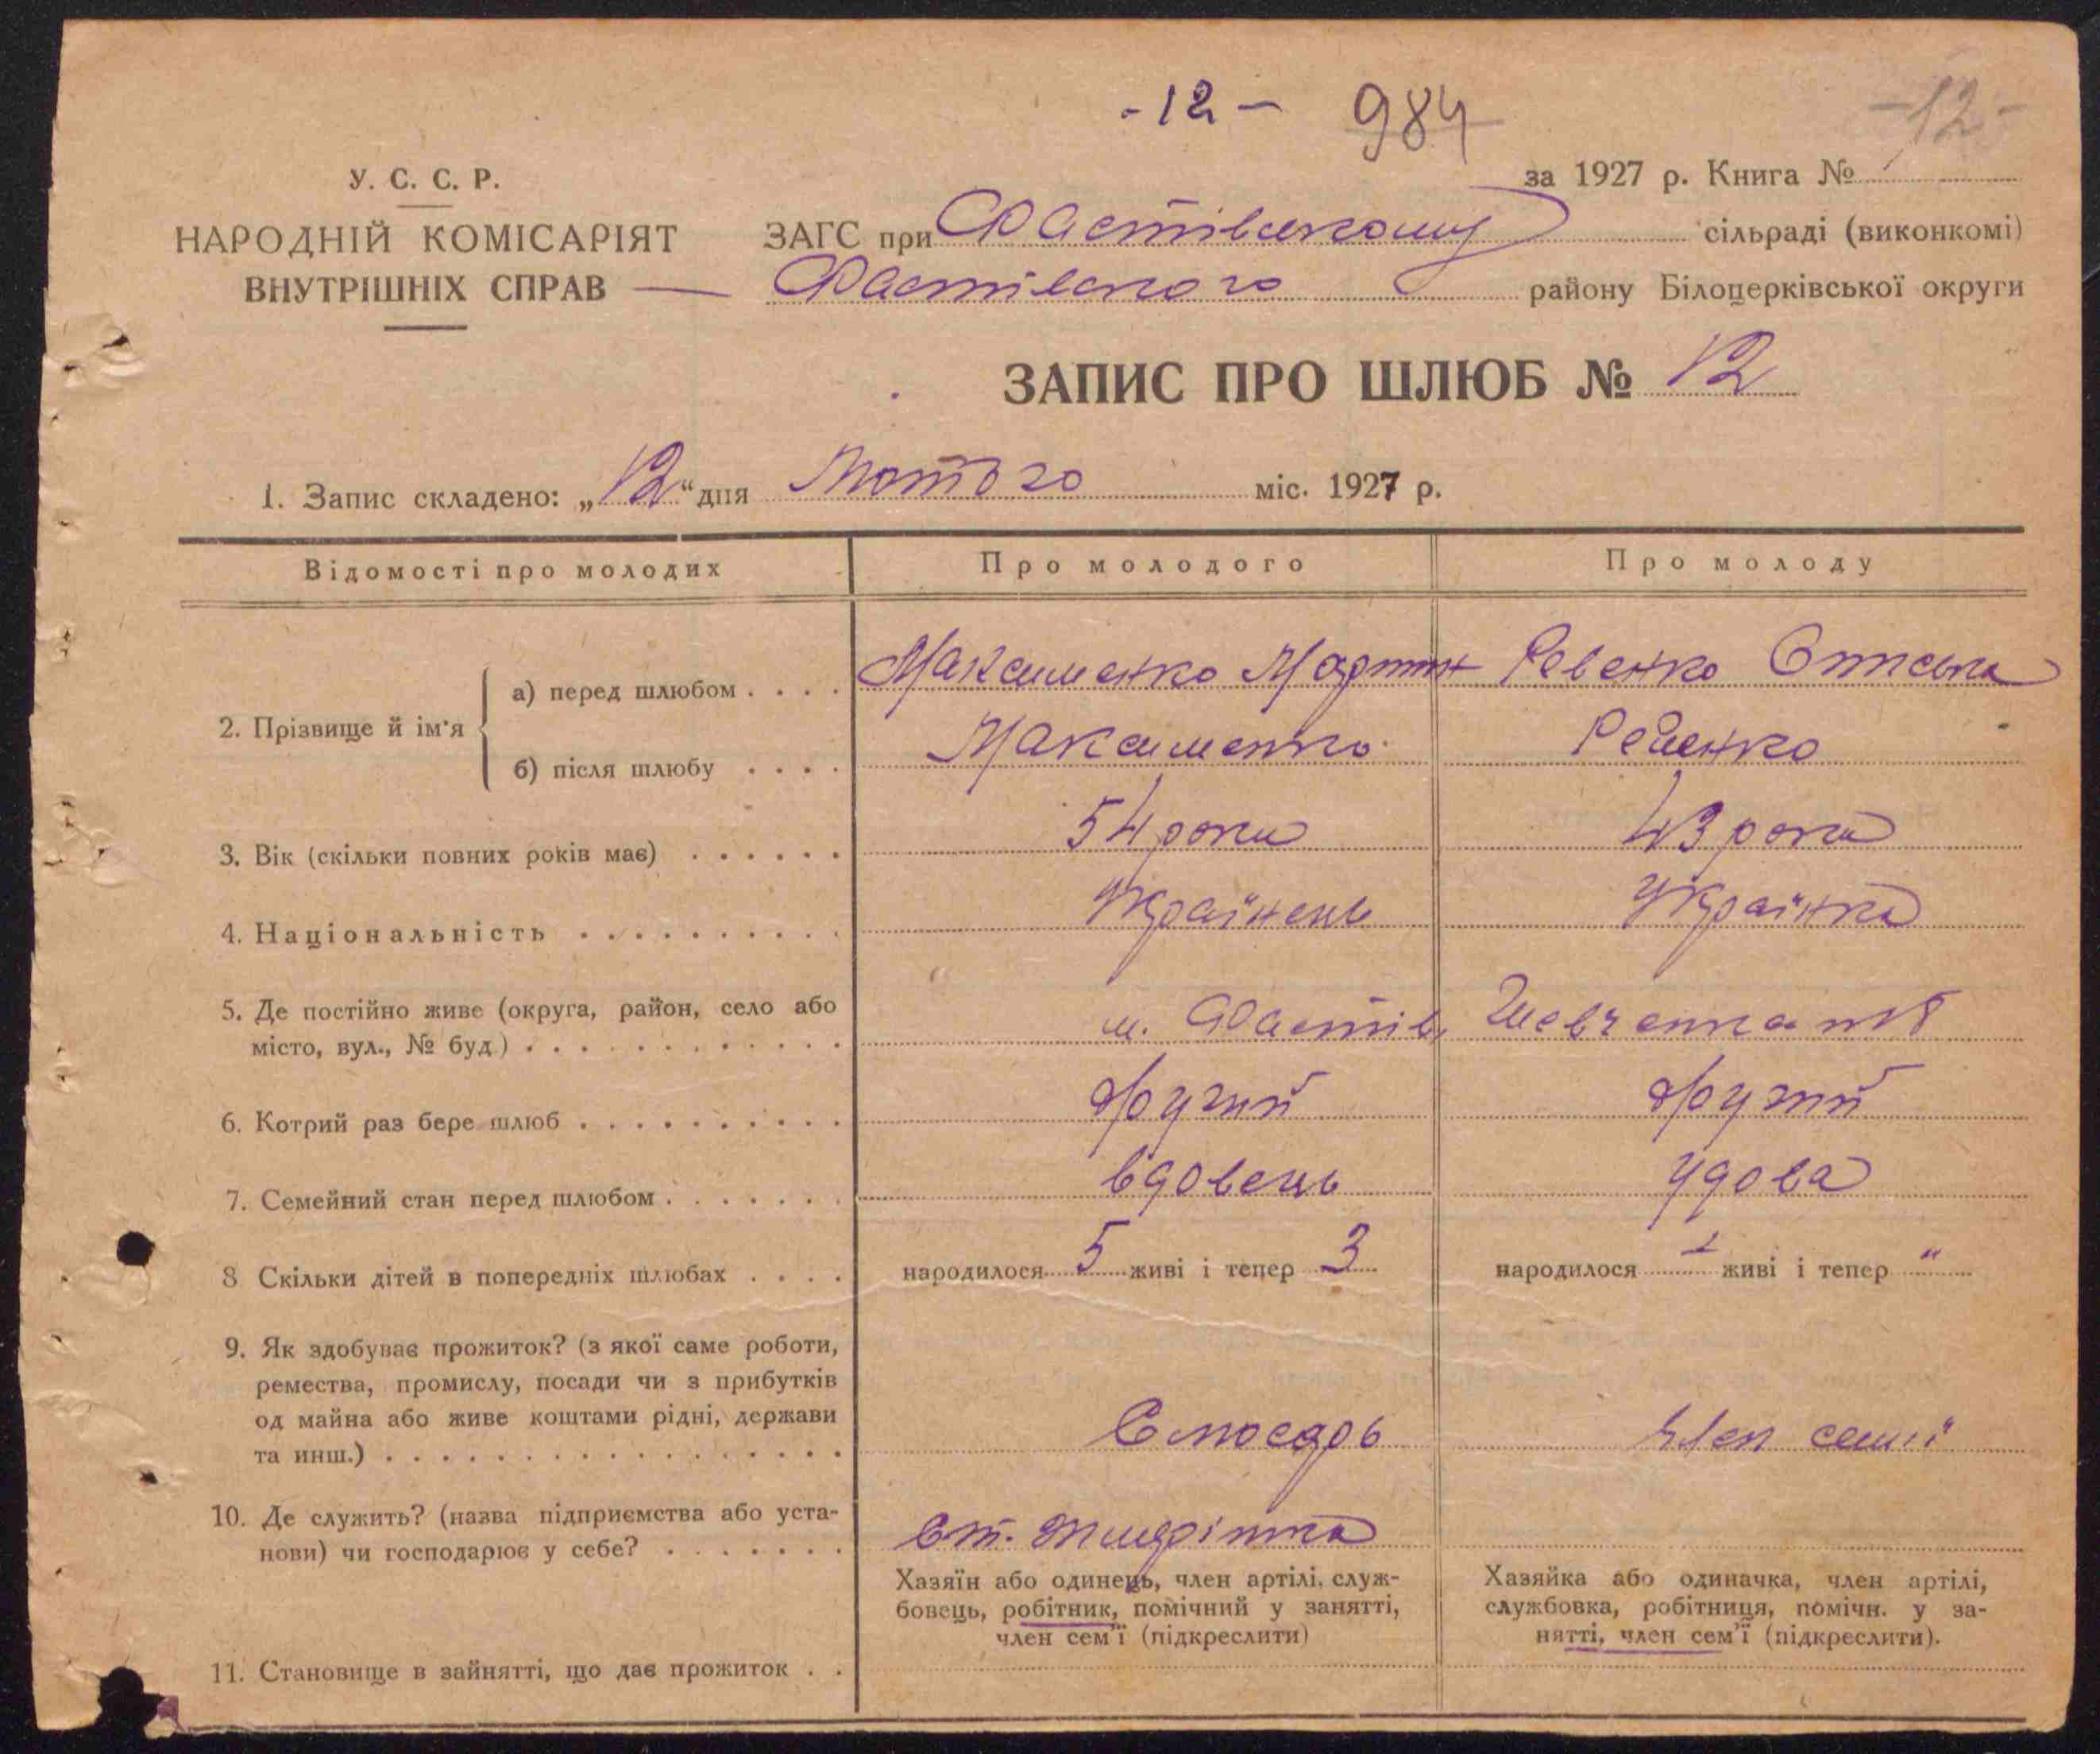 -12- 984 -12-
У. С. С. Р.
НАРОДНІЙ КОМІСАРІЯТ
ВНУТРІШНІХ СПРАВ
за 1927 р. Книга №
ЗАГС при Фастівському сільраді (виконкомі)
Фастівського району Білоцерківської округи
ЗАПИС ПРО ШЛЮБ № 12
1. Запис складено: „12“ дня Лютого міс. 1927 р.
Відомості про молодих Про молодого Про молоду
2. Прізвище й ім'я
а) перед шлюбом . . . . Максименко Мартин Ревенко
б) після шлюбу . . . . Максименко Ревенко
3. Вік (скільки повних років має) . . . . . . 54 роки 43 роки
4. Національність . . . . . . . . . . Українець Українка
5. Де постійно живе (округа, район, село або
місто, вул., № буд.) . . . . . . . . . . . . м. Фастів, Шевченка
6. Котрий раз бере шлюб . . . . . . . . . . другий другий
7. Семейний стан перед шлюбом . . . . . . . вдовець удова
8 Скільки дітей в попередніх шлюбах . . . . народилося 5 живі і тепер 3 народилося 1 живі і тепер "
9. Як здобуває прожиток? (з якої саме роботи,
ремества, промислу, посади чи з прибутків
од майна або живе коштами рідні, держави
та инш.) . . . . . . . . . . . . . . . . . Слюсарь Член семьї
10. Де служить? (назва підприємства або уста-
нови) чи господарює у себе? . . . . . . . Ст.
Хазяїн або одинець, член артілі, служ-
бовець, робітник, помічний у занятті,
член сем'ї (підкреслити)
Хазяйка або одиначка, член артілі,
службовка, робітниця, помічн. у за-
нятті, член сем'ї (підкреслити).
11. Становище в зайнятті, що дає прожиток . .